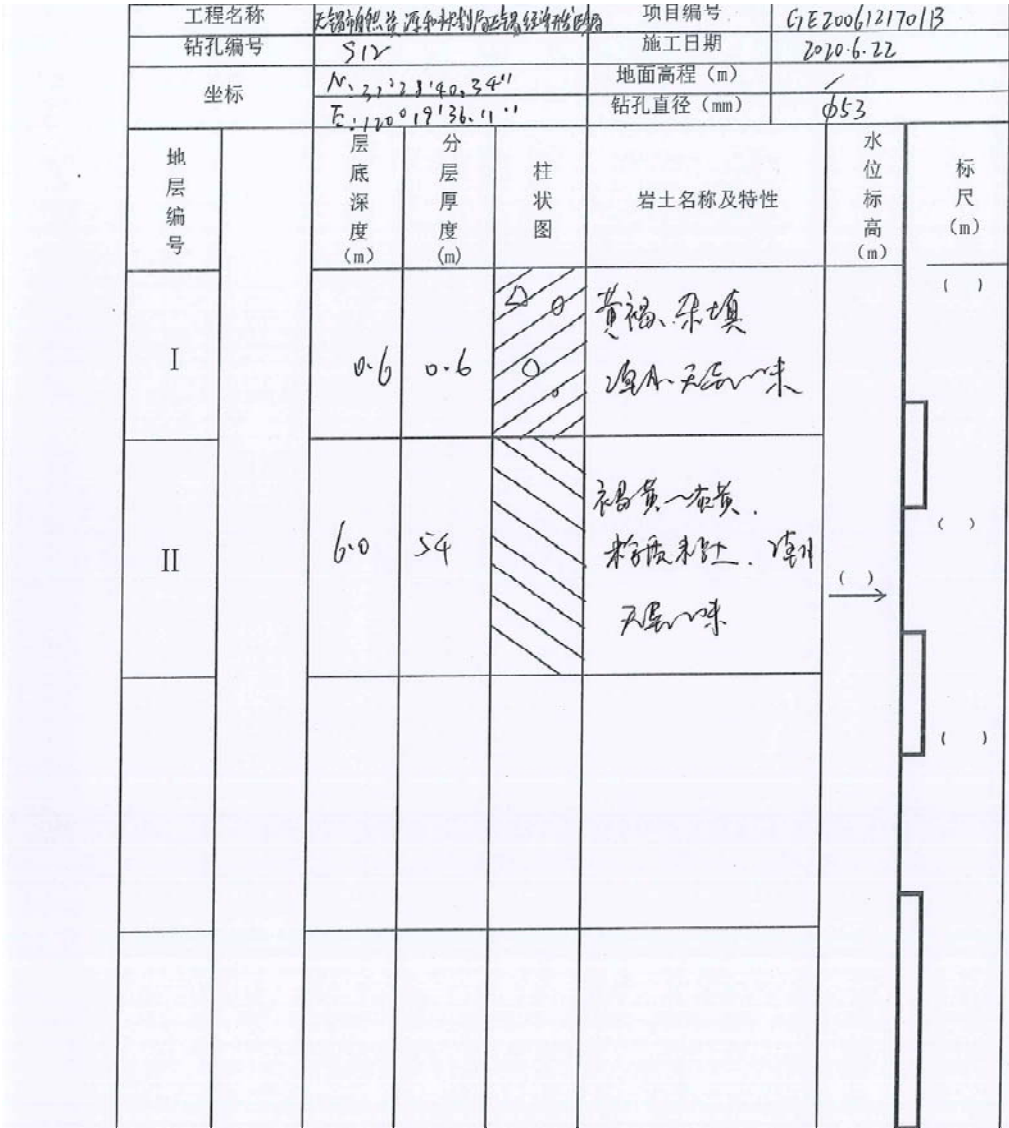 工程名称 无锡市自然资源和规划局无锡经济开发区分局 项目编号 GE2006121701B
钻孔编号 S12 施工日期 2020.6.22
坐标 N: 31°28'40.34" 地面高程（m） /
E: 120°19'36.11" 钻孔直径（mm） φ53
地层编号 层底深度（m） 分层厚度(m) 柱状图 岩土名称及特性 水位标高（m） 标尺（m）
( )
I 0.6 0.6 黄褐、杂填
无异味
( )
II 6.0 54 褐黄～灰黄.
粉质粘土.
无异味
( )
( )